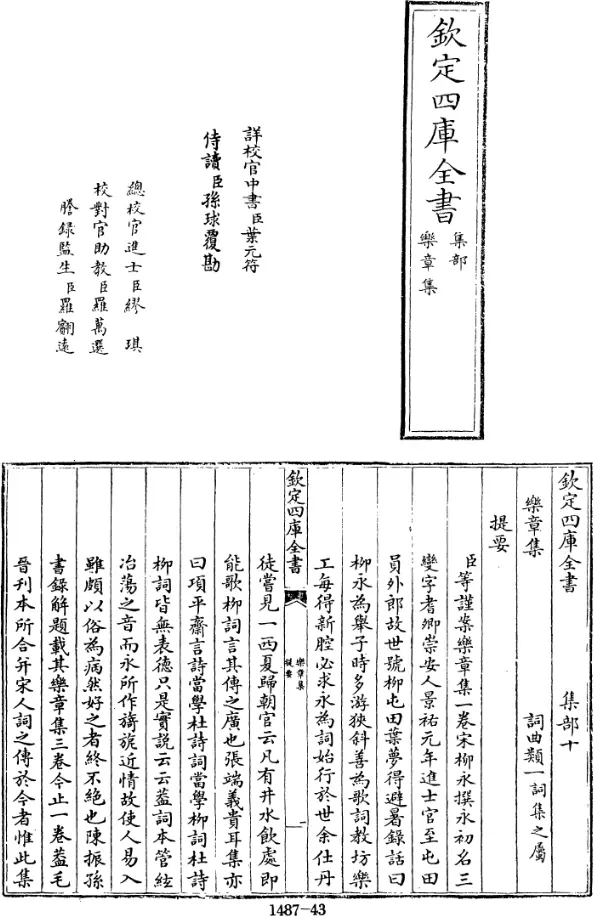 欽定四庫全書
集部
樂章集
詳校官中書臣葉元符
侍讀臣孫球覆勘
總校官進士臣繆琪
校對官助教臣羅萬選
謄錄監生臣羅翽遠
欽定四庫全書 集部十
樂章集 詞曲類一詞集之屬
提要
臣等謹案樂章集一卷宋柳永撰永初名三
變字耆卿崇安人景祐元年進士官至屯田
員外郎故世號柳屯田葉夢得避暑錄話曰
柳永為舉子時多游狹斜善為歌詞教坊樂
工每得新腔必求永為詞始行於世余仕丹
欽定四庫全書
樂章集
提要
一
徒嘗見一西夏歸朝官云凡有井水飲處即
能歌柳詞言其傳之廣也張端義貴耳集亦
曰項平齋言詩當學杜詩詞當學柳詞杜詩
柳詞皆無表德只是實說云云蓋詞本管絃
冶蕩之音而永所作旖旎近情故使人易入
雖頗以俗為病然好之者終不絕也陳振孫
書錄解題載其樂章集三卷今止一卷蓋毛
晉刊本所合并宋人詞之傳於今者惟此集
1487-43